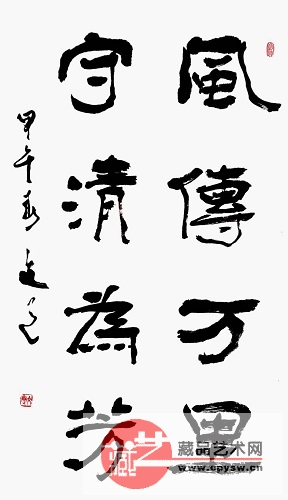 風傳万里
守清為芳
甲午春
藏艺
藏品艺术网
www.cpysw.cn